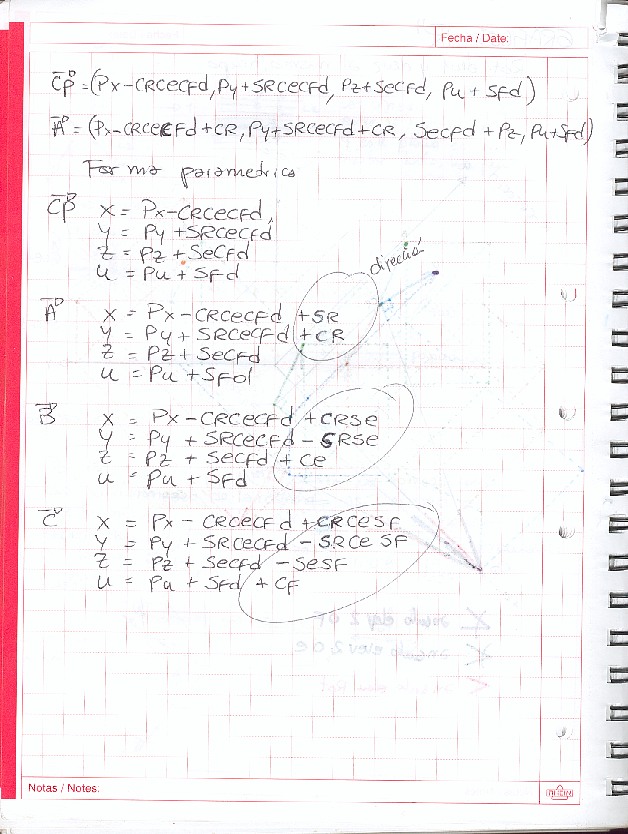 Fecha / Date:
CP = (Px-CRCeCFd, Py+SRCeCFd, Pz+SeCFd, Pu + SFd)
A = (Px-CRCeCFd+CR, Py+SRCeCFd+CR, SeCFd + Pz, Pu+SFd)
Forma parametrica
CP X = Px-CRCeCFd,
Y = Py +SRCeCFd
Z = Pz +SeCFd
U = Pu + SFd
direcció
A X = Px - CRCeCFd +SR
Y = Py + SRCeCFd +CR
Z = Pz + SeCFd
U = Pu + SFd
B X = Px - CRCeCFd +CRSe
Y = Py + SRCeCFd - SRSe
Z = Pz + SeCFd + Ce
U = Pu + SFd
C X = Px - CRCeCFd + CRCeSF
Y = Py + SRCeCFd - SRCeSF
Z = Pz + SeCFd - SeSF
U = Pu + SFd + CF
Notas / Notes: